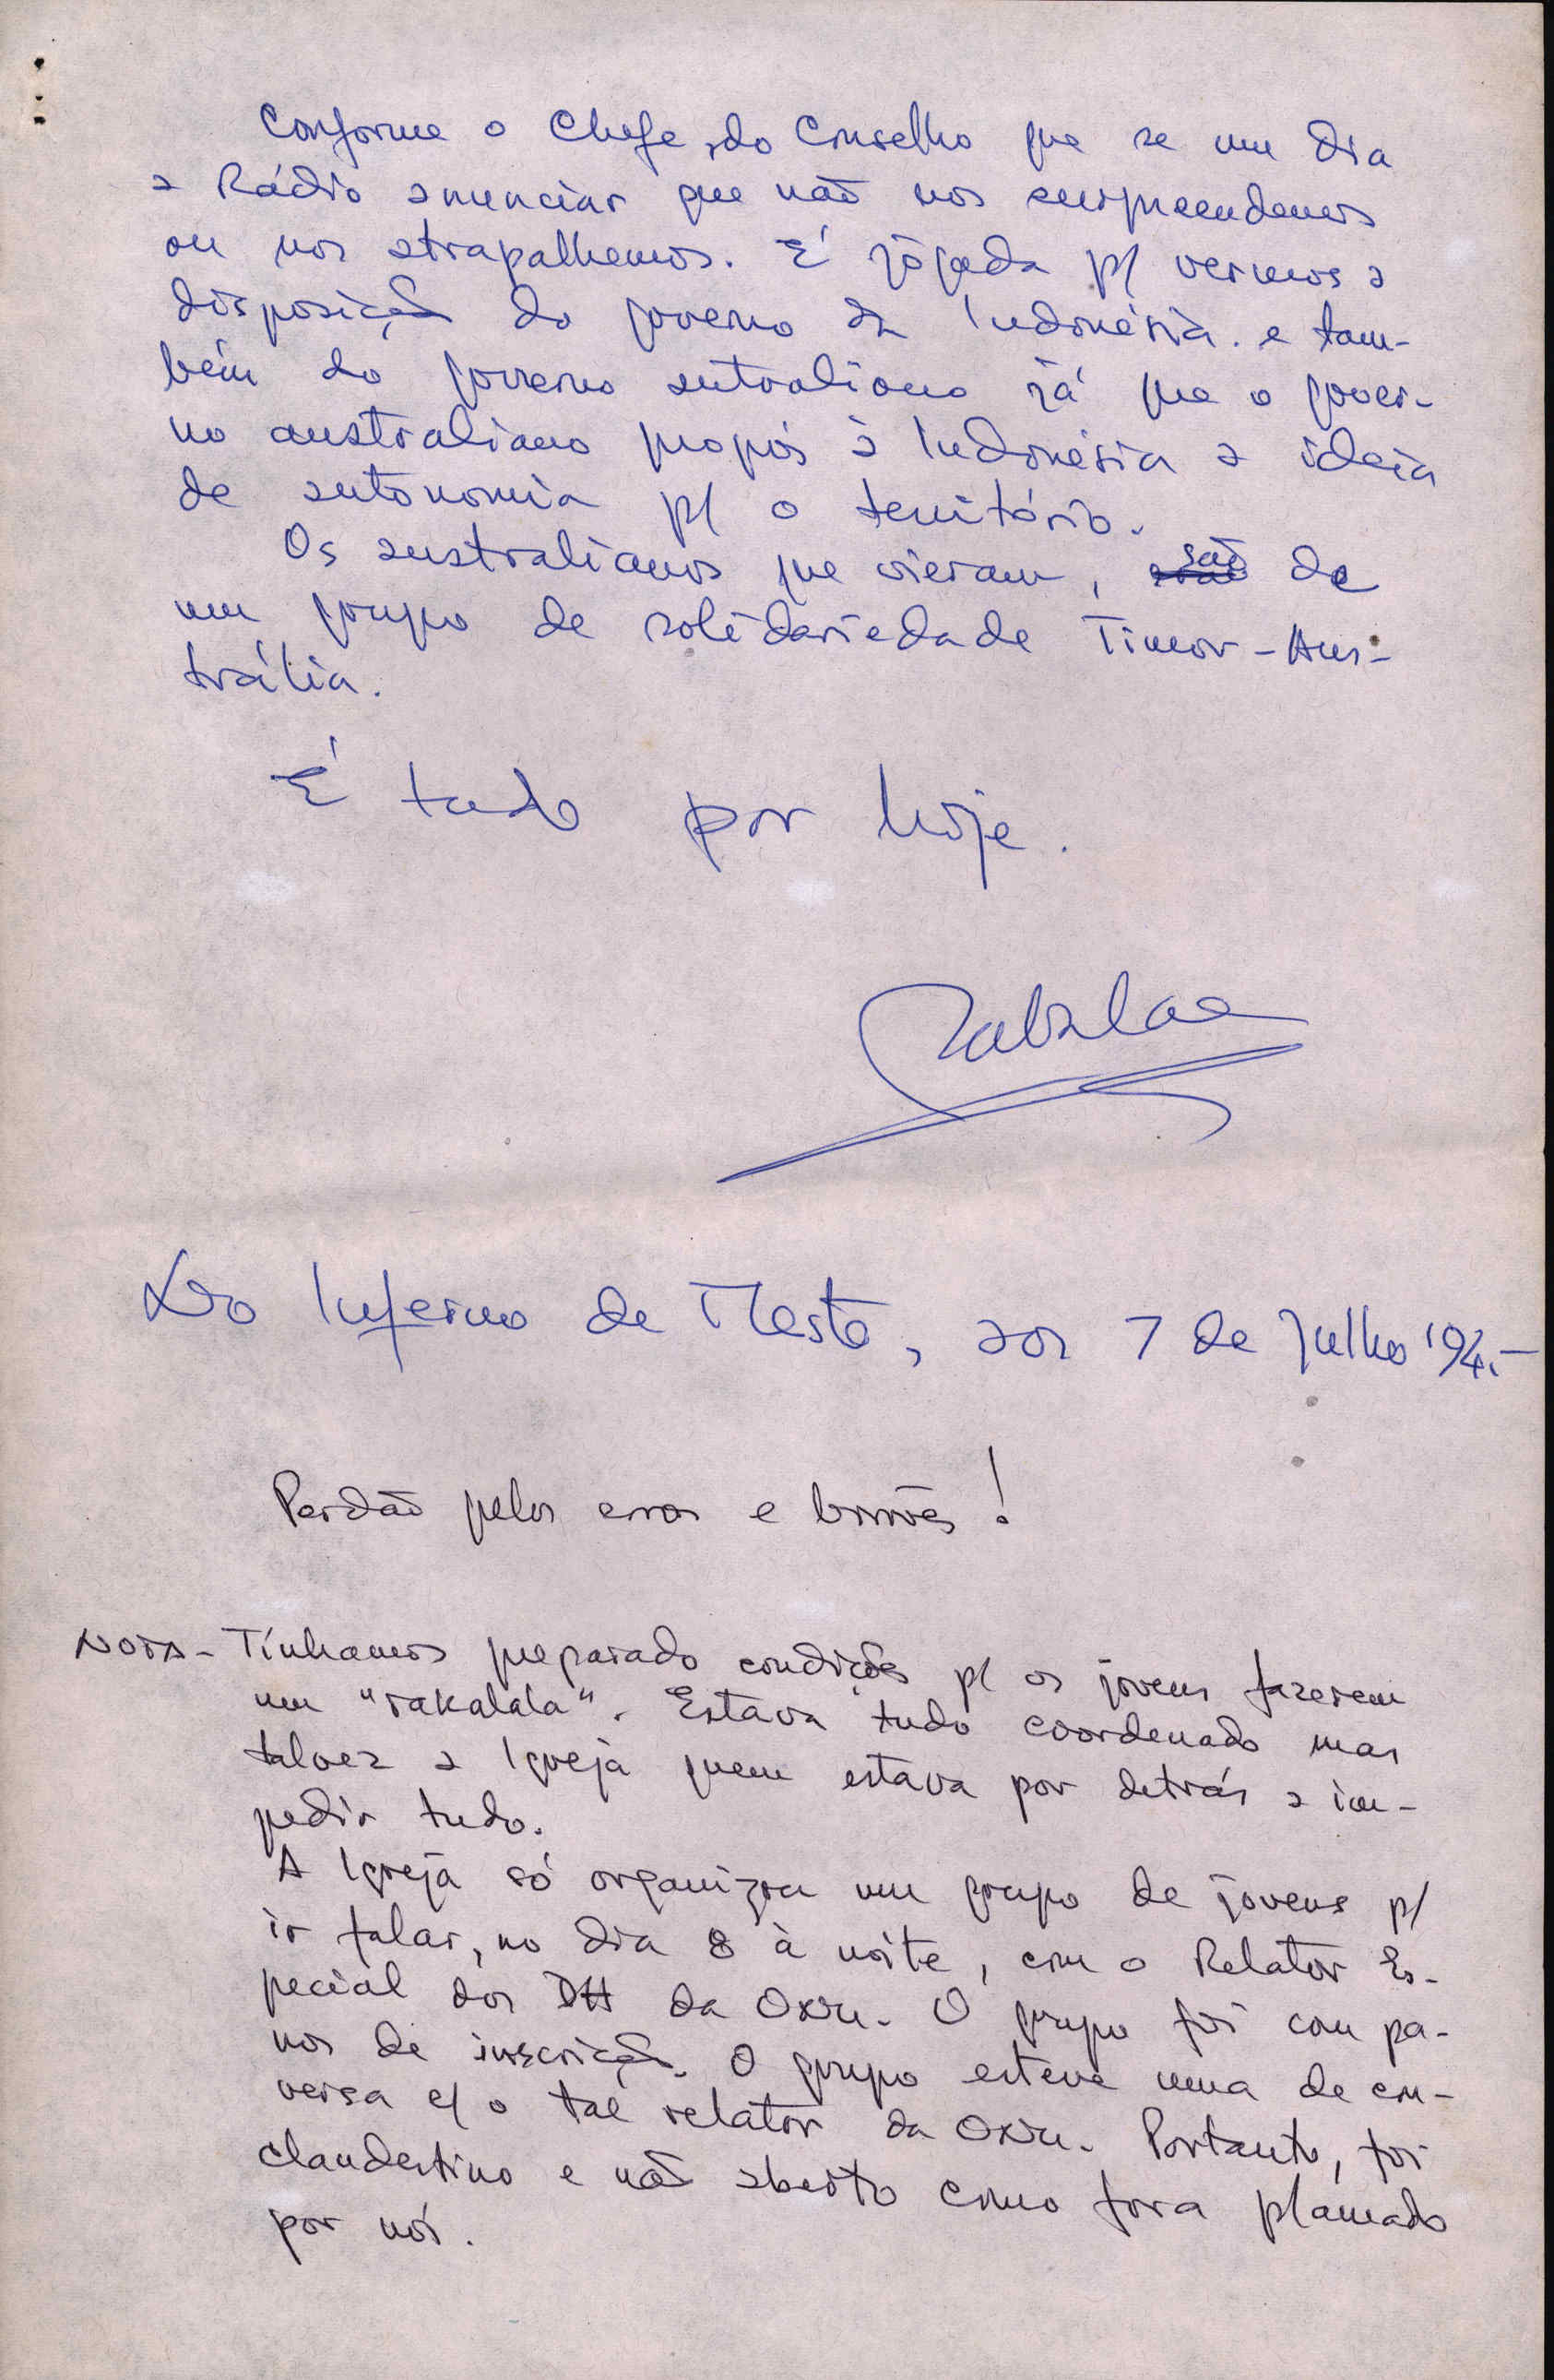 Conforme o Chefe do Conselho que se um dia
a Rádio anunciar que não nos surpreendamos
ou nos atrapalhemos. É jogada p/ vermos a
disposição do governo da Indonésia e tam-
bém do governo autraliano já que o gover-
no australiano propôs à Indonésia a ideia
de autonomia p/ o território.
Os australianos que vieram, são de
um grupo de solidariedade Timor-Aus-
trália.
É tudo por hoje.
Sabalae
Do Inferno de T Leste, aos 7 de Julho '94.-
Perdão pelos erros e borrões!
NOTA- Tínhamos preparado condições p/ os jovens fazerem
um "rakalala". Estava tudo coordenado mas
talvez a Igreja quem estava por detrás a im-
pedir tudo.
A Igreja só organizou um grupo de jovens p/
ir falar, no dia 8 à noite, com o Relator Es-
pecial dos DH da ONU. O grupo foi com pa-
nos de inscrição. O grupo esteve numa de con-
versa c/ o tal relator da ONU. Portanto, foi
clandestino e não aberto como fora planeado
por nós.